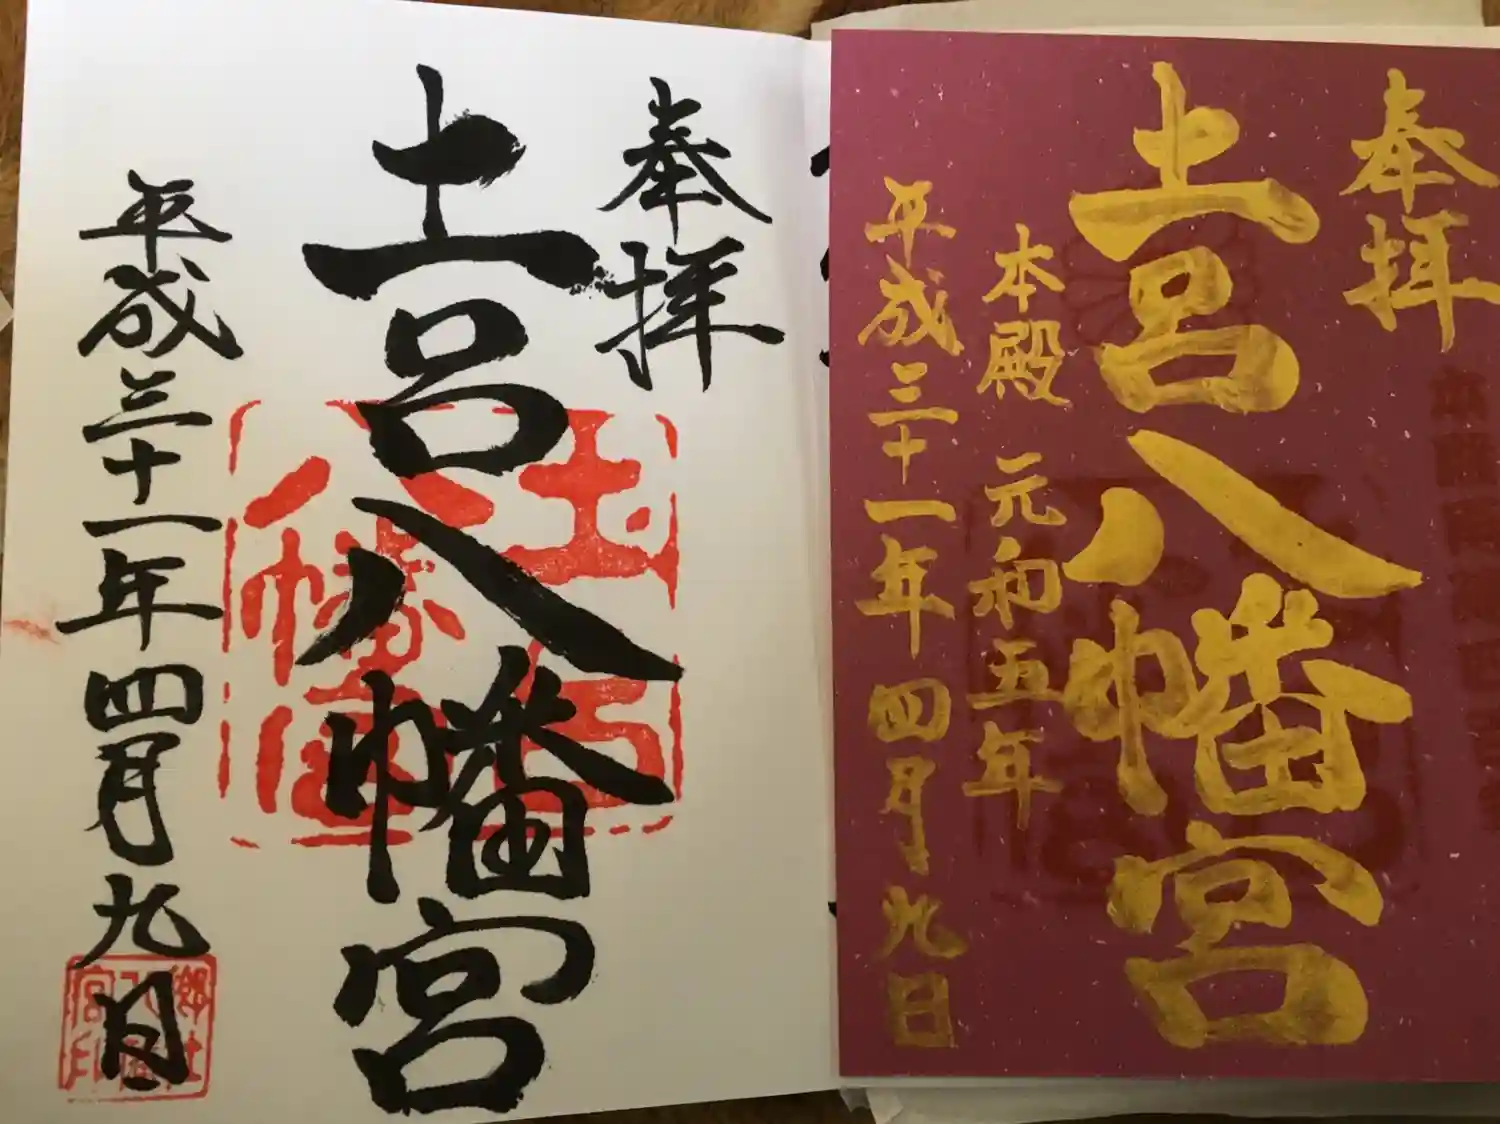 奉拝
土呂八幡宮
平成三十一年四月九日
土呂八幡宮
郷社八幡宮印
奉拝
土呂八幡宮
本殿 元和五年
平成三十一年四月九日